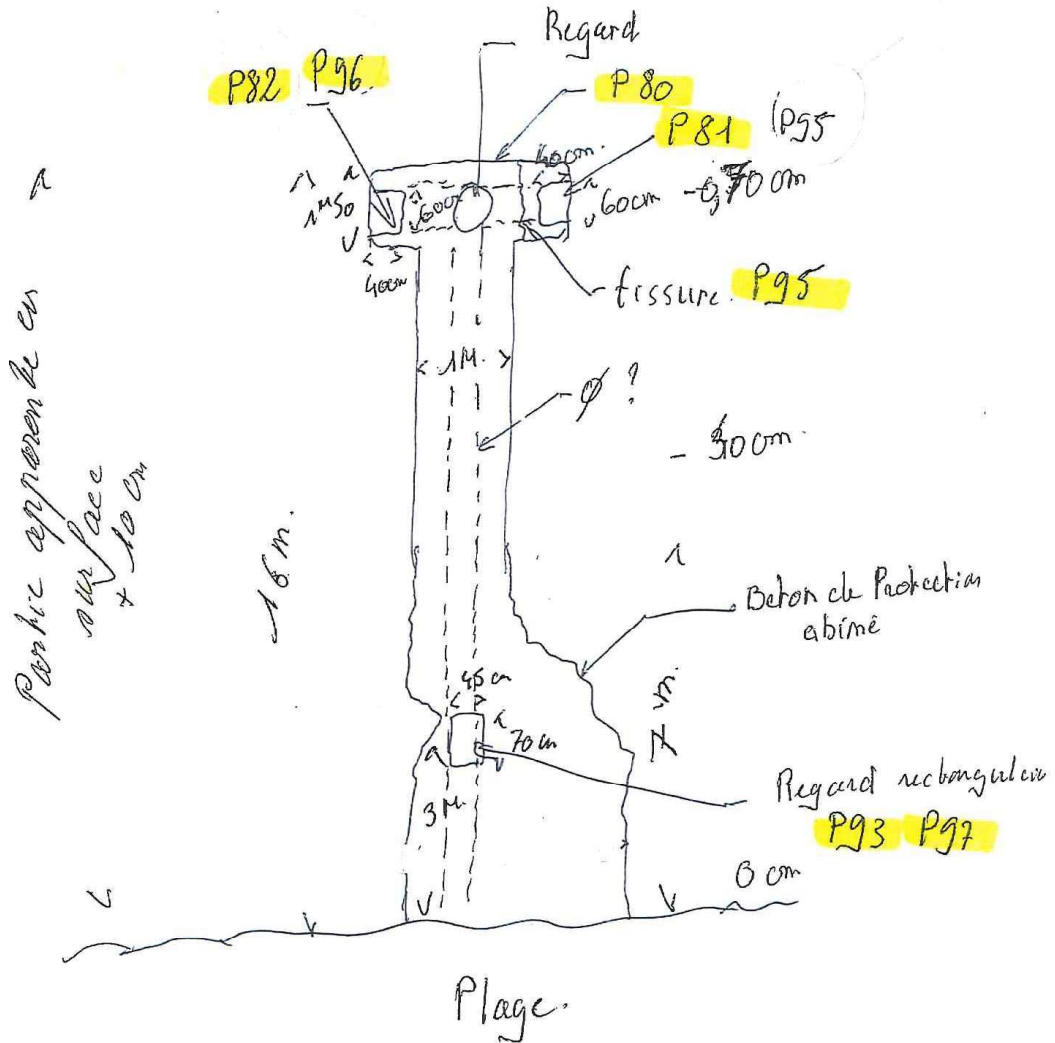 Regard
P82 P96
P80
P81 (P95
40cm.
1M50
60cm
60cm - 0,70cm
40cm
fissure. P95
1M.
- Ø ?
- 30cm
Partie apparente en
surface
+ 10 cm
16 m.
Beton de Protection
abimé
45cm
70cm
7 m.
3M.
Regard rectangulaire
P93 P97
0 cm
Plage.